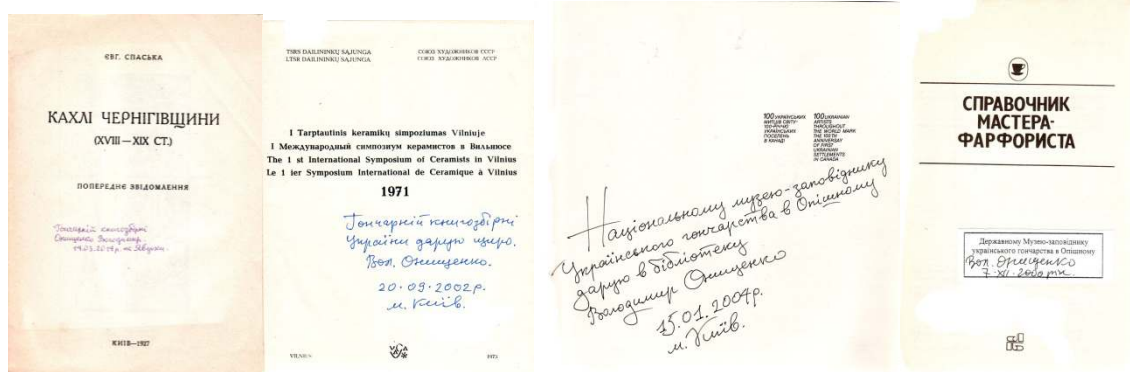 ЄВГ. СПАСЬКА
КАХЛІ ЧЕРНІГІВЩИНИ
(XVIII — XIX СТ.)
ПОПЕРЕДНЄ ЗВІДОМЛЕННЯ
Гончарній книгозбірні
Онищенко Володимир.
КИЇВ—1927
TSRS DAILININKŲ SĄJUNGA
LTSR DAILININKŲ SĄJUNGA
СОЮЗ ХУДОЖНИКОВ СССР
СОЮЗ ХУДОЖНИКОВ ЛССР
I Tarptautinis keramikų simpoziumas Vilniuje
I Международный симпозиум керамистов в Вильнюсе
The 1 st International Symposium of Ceramists in Vilnius
Le 1 ier Symposium International de Ceramique à Vilnius
1971
Гончарній книгозбірні
України дарую щиро.
Вол. Онищенко.
20.09.2002р.
м. Київ.
VILNIUS
100 УКРАЇНСЬКИХ
МИТЦІВ СВІТУ
100-РІЧЧЮ
УКРАЇНСЬКИХ
ПОСЕЛЕНЬ
В КАНАДІ
100 UKRAINIAN
ARTISTS
THROUGHOUT
THE WORLD MARK
THE 100TH
ANNIVERSARY
OF FIRST
UKRAINIAN
SETTLEMENTS
IN CANADA
Національному музею-заповіднику
Українського гончарства в Опішному
дарую в бібліотеку
Володимир Онищенко
15.01.2004р.
м. Київ.
СПРАВОЧНИК
МАСТЕРА-
ФАРФОРИСТА
Державному Музею-заповіднику
українського гончарства в Опішному
Вол. Онищенко
7.XII.2000р.